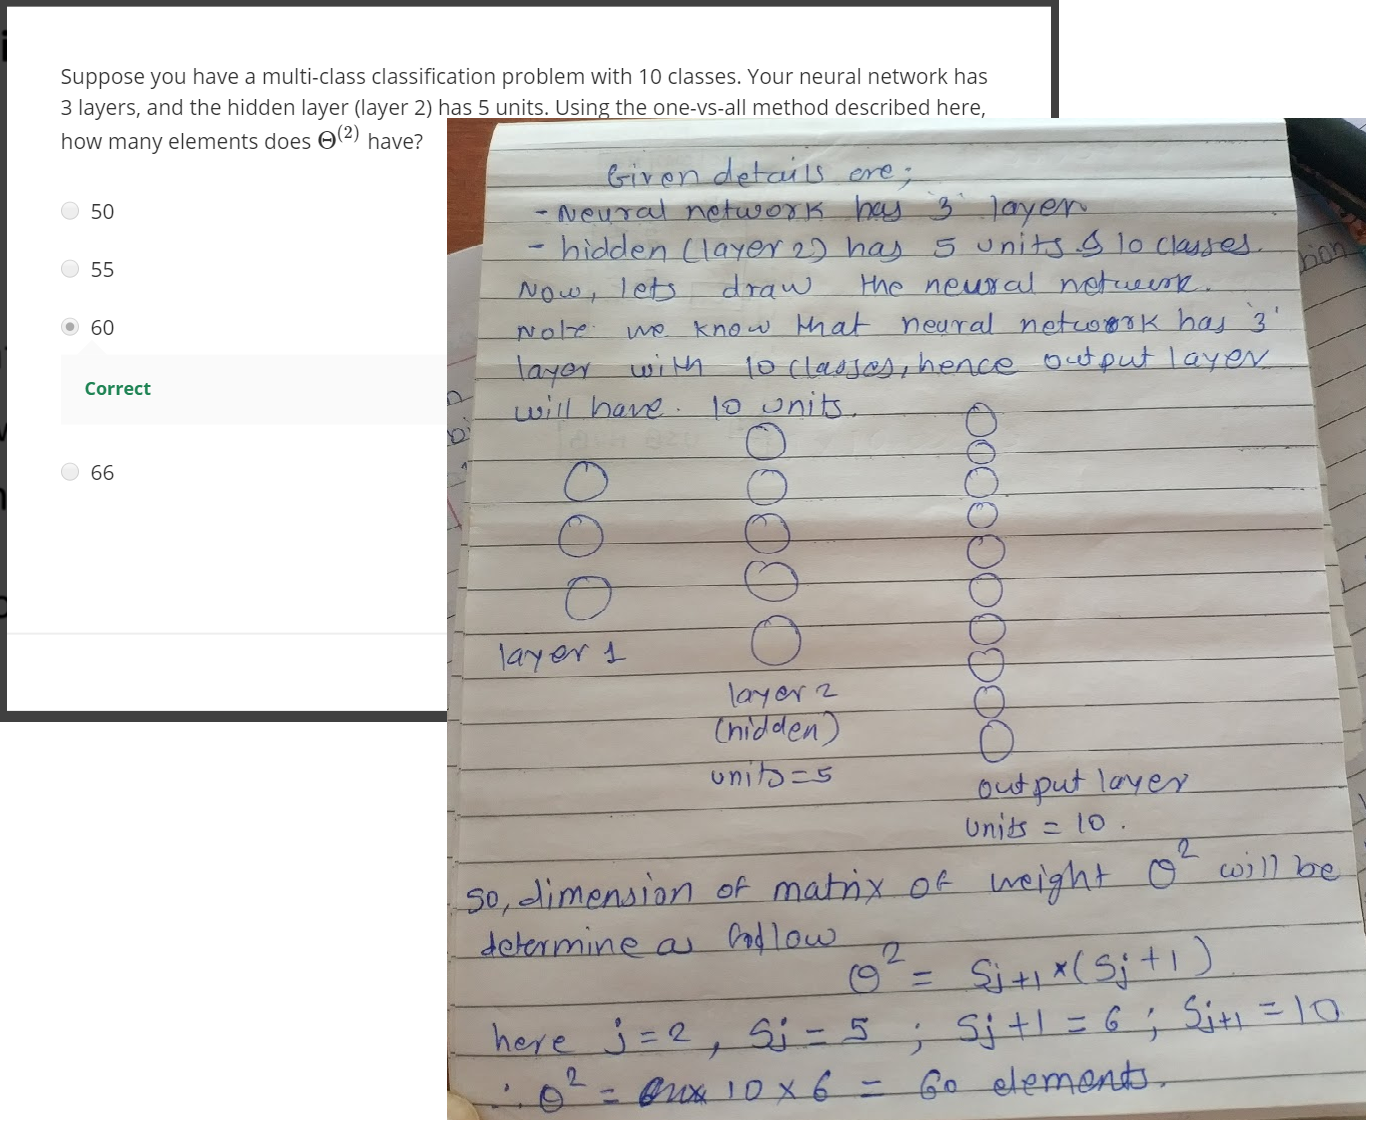 Suppose you have a multi-class classification problem with 10 classes. Your neural network has
3 layers, and the hidden layer (layer 2) has 5 units. Using the one-vs-all method described here,
how many elements does Θ(2) have?
50
55
60
Correct
66
Given details are;
- Neural network has '3' layer
- hidden (layer 2) has 5 units & 10 classes.
Now, lets draw the neural network.
Note: we know that neural network has '3'
layer with 10 classes, hence output layer
will have 10 units.
layer 1
layer 2
(hidden)
units = 5
output layer
Units = 10.
So, dimension of matrix of weight Θ² will be
determine as follow
Θ² = Sj+1 × (Sj + 1)
here j = 2, Sj = 5 ; Sj + 1 = 6 ; Sj+1 = 10
∴ Θ² = 10 × 6 = 60 elements.